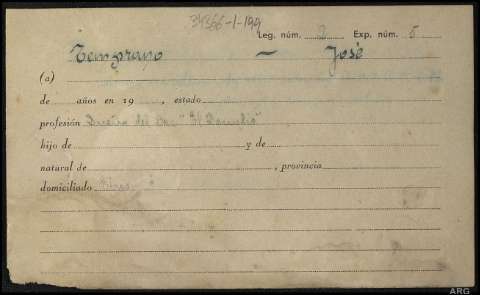 34366-1-199
Leg. núm. 2 Exp. núm. 5
Temprano — José
(a)
de años en 19 , estado
profesión Dueño del Bar "El
hijo de y de
natural de , provincia
domiciliado
ARG